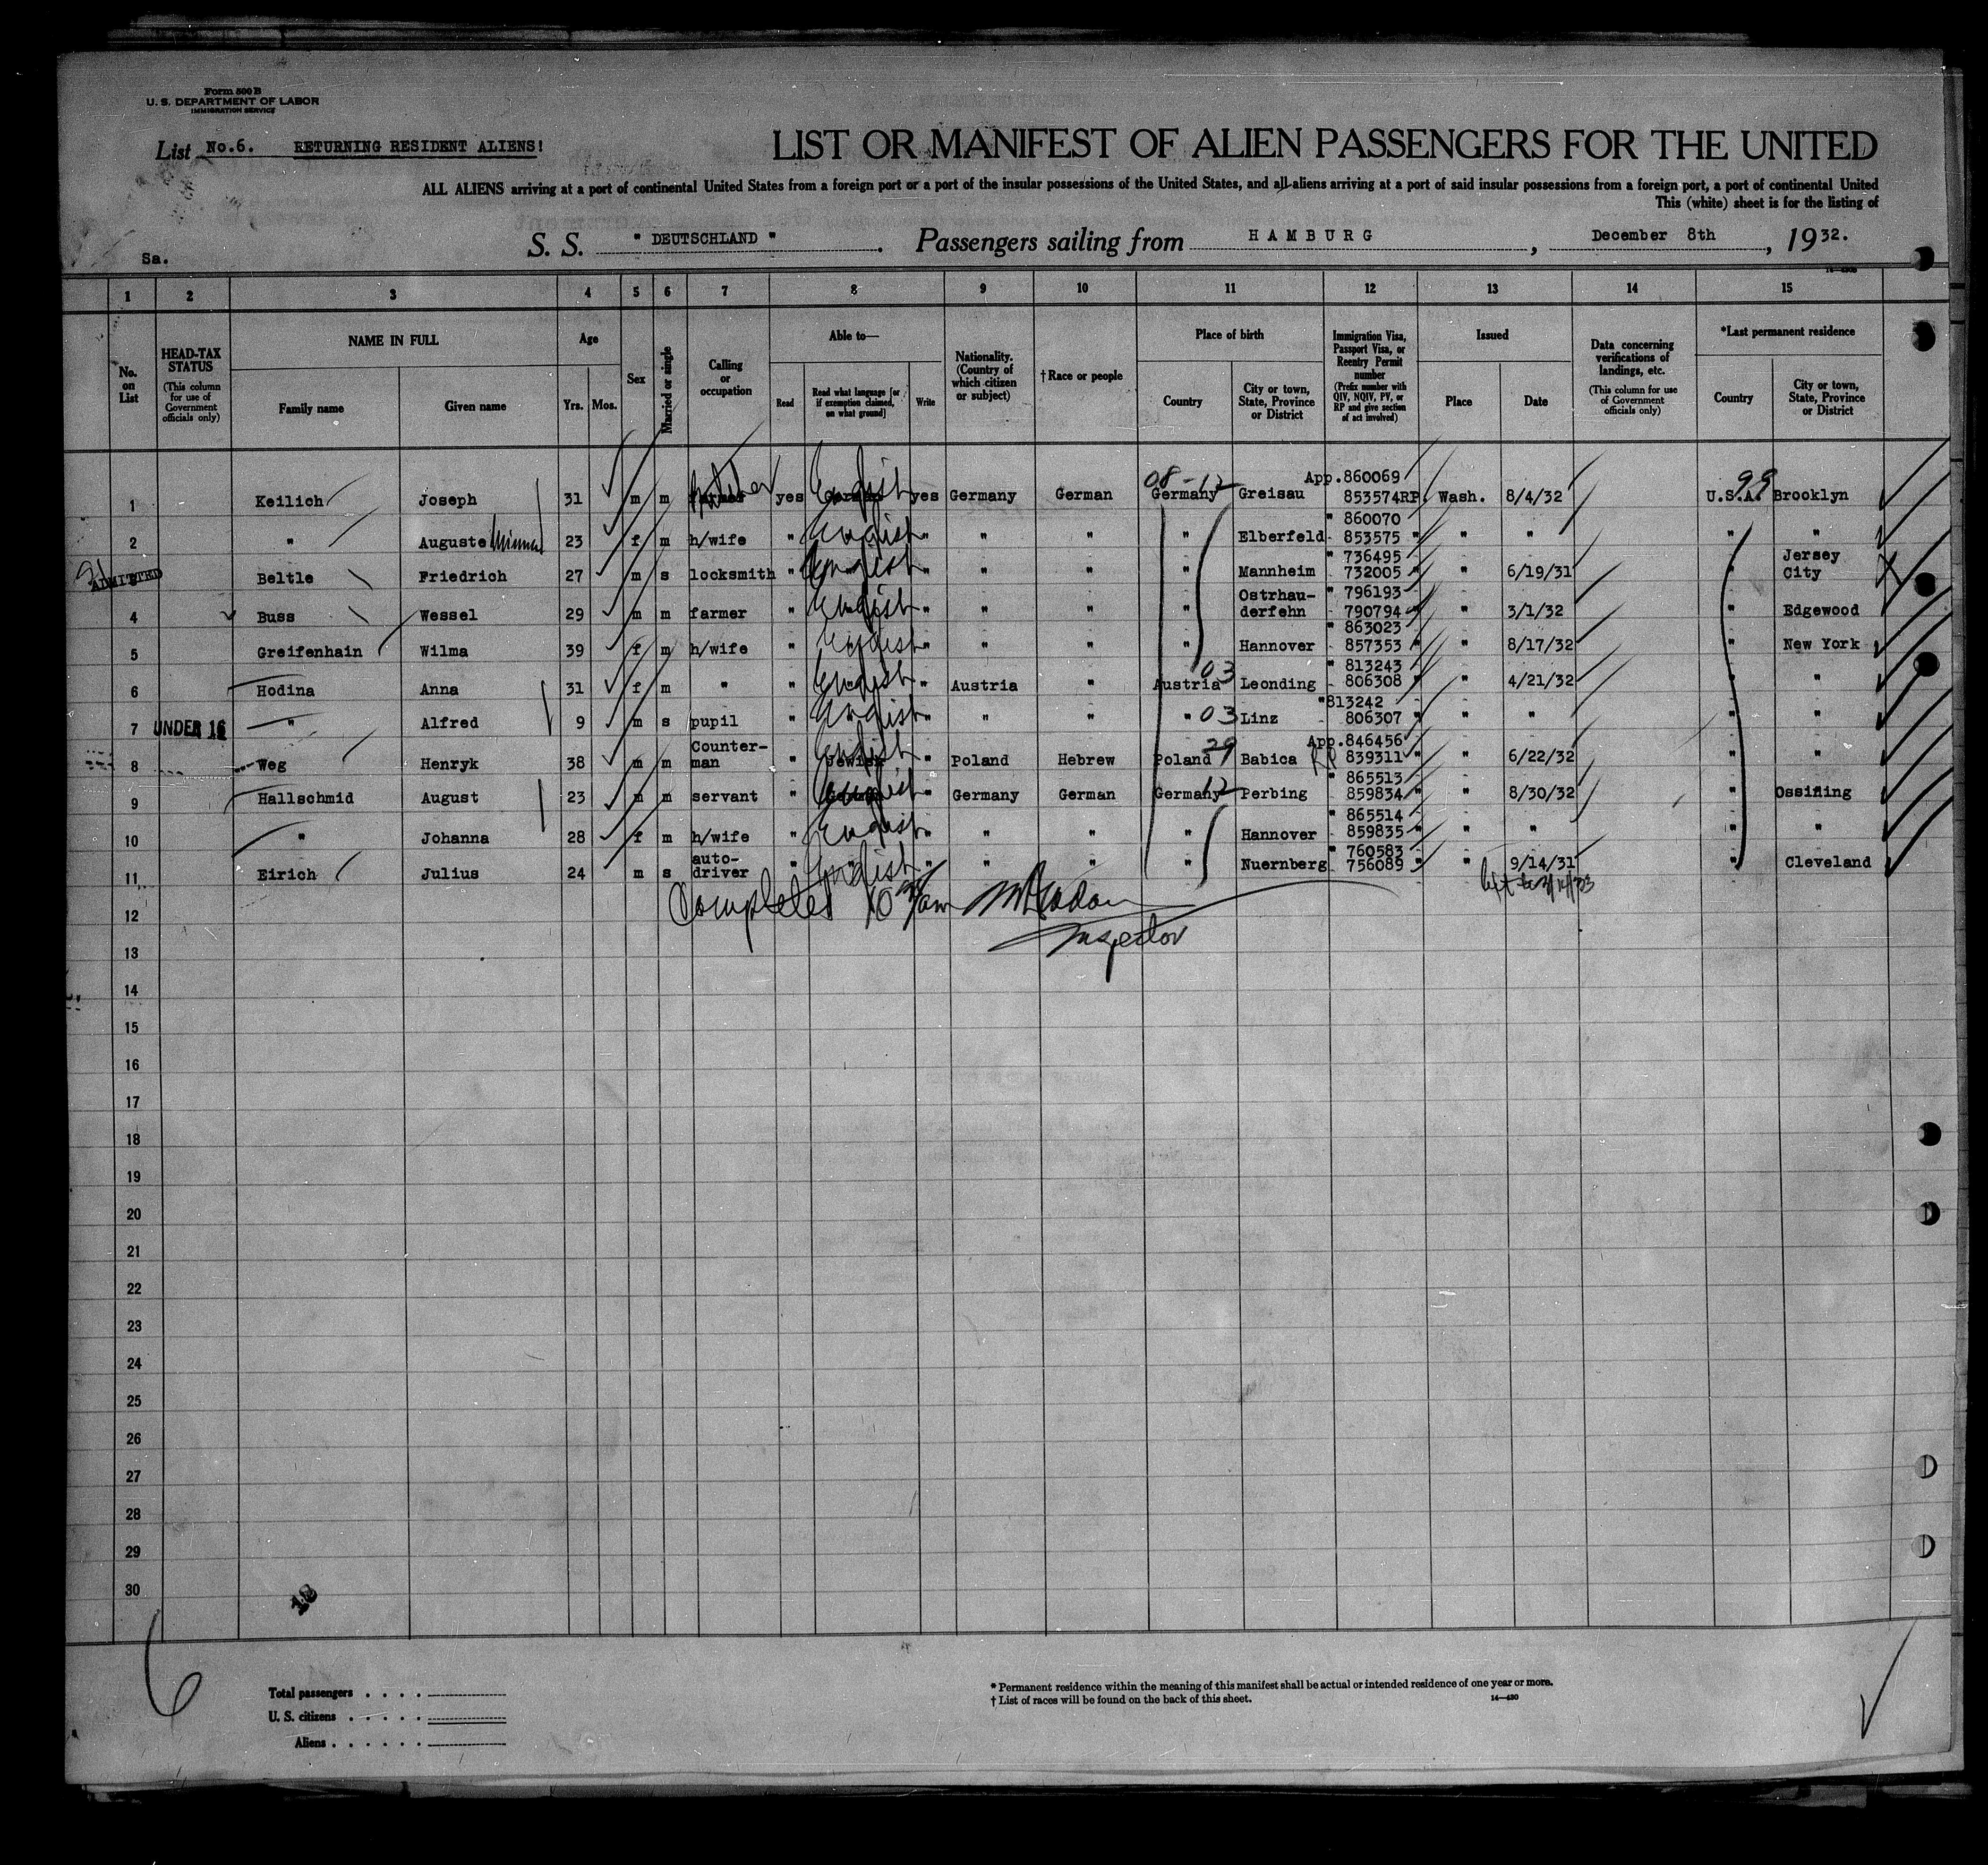 Form 500 B
U. S. DEPARTMENT OF LABOR
IMMIGRATION SERVICE
List No.6. RETURNING RESIDENT ALIENS!
LIST OR MANIFEST OF ALIEN PASSENGERS FOR THE UNITED
ALL ALIENS arriving at a port of continental United States from a foreign port or a port of the insular possessions of the United States, and all aliens arriving at a port of said insular possessions from a foreign port, a port of continental United
This (white) sheet is for the listing of
Sa.
S. S. " DEUTSCHLAND " . Passengers sailing from HAMBURG , December 8th , 1932.
1 2 3 4 5 6 7 8 9 10 11 12 13 14 15
No. on List
HEAD-TAX STATUS (This column for use of Government officials only)
NAME IN FULL
Family name Given name
Age
Yrs. Mos.
Sex
Married or single
Calling or occupation
Able to—
Read Read what language [or if exemption claimed, on what ground] Write
Nationality. (Country of which citizen or subject)
†Race or people
Place of birth
Country City or town, State, Province or District
Immigration Visa, Passport Visa, or Reentry Permit number (Prefix number with QIV, NQIV, PV, or RP and give section of act involved)
Issued
Place Date
Data concerning verifications of landings, etc. (This column for use of Government officials only)
*Last permanent residence
Country City or town, State, Province or District
1 Keilich Joseph 31 m m yes English yes Germany German 08-12 Germany Greisau App.860069 853574RP. Wash. 8/4/32 99 U.S.A. Brooklyn
2 " Auguste Minna 23 f m h/wife " English " " " " Elberfeld " 860070 853575 " " " " "
ADMITTED Beltle Friedrich 27 m s locksmith " English " " " " Mannheim " 736495 732005 " " 6/19/31 " Jersey City
4 Buss Wessel 29 m m farmer " English " " " " Ostrhau-derfehn " 796193 790794 " " 3/1/32 Edgewood
5 Greifenhain Wilma 39 f m h/wife " English " " " " Hannover " 863023 857353 " " 8/17/32 " New York
6 Hodina Anna 31 f m " " English " Austria " Austria 03 Leonding " 813243 806308 " " 4/21/32 " "
7 UNDER 16 " Alfred 9 m s pupil " English " " " " 03 Linz "813242 806307 " " " " "
8 Weg Henryk 38 m m Counter-man " Jewish English " Poland Hebrew Poland 29 Babica App.846456 RP 839311 " " 6/22/32 " "
9 Hallschmid August 23 m m servant " English " Germany German Germany 12 Perbing " 865513 859834 " " 8/30/32 " Ossining
10 " Johanna 28 f m h/wife " English " " " " Hannover " 865514 859835 " " " " "
11 Eirich Julius 24 m s auto-driver " English " " " " Nuernberg " 760583 756089 " " 9/14/31 " Cleveland
12 Completed 10 am
13 Inspector
14
15
16
17
18
19
20
21
22
23
24
25
26
27
28
29
30
6
Total passengers
U. S. citizens
Aliens
* Permanent residence within the meaning of this manifest shall be actual or intended residence of one year or more.
† List of races will be found on the back of this sheet. 14—430